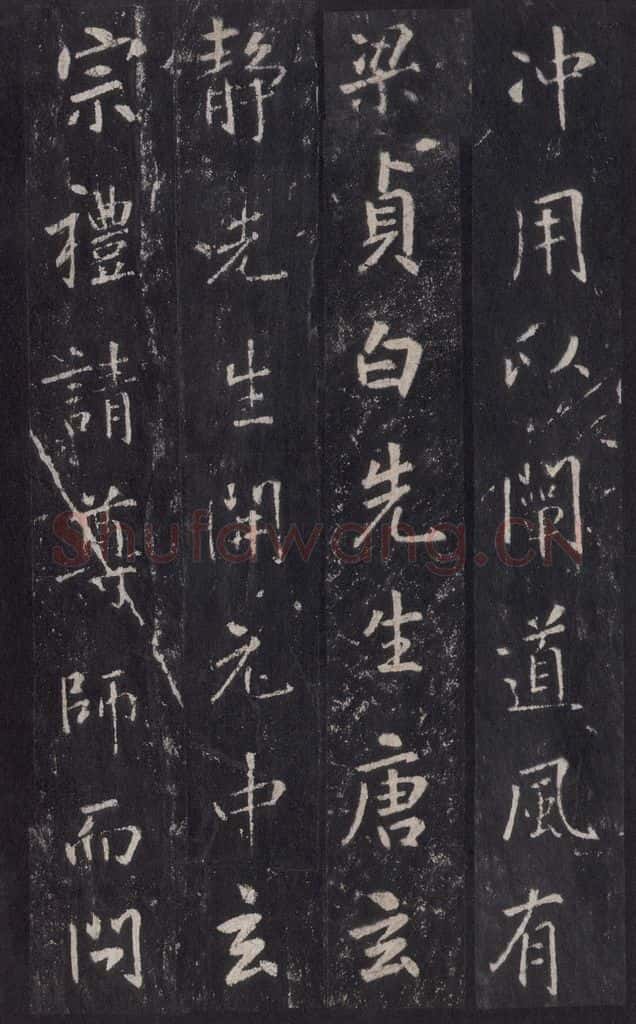 冲用以闡道風有
梁貞白先生唐玄
静先生開元中玄
宗禮請尊師而問
Shufawang.CN